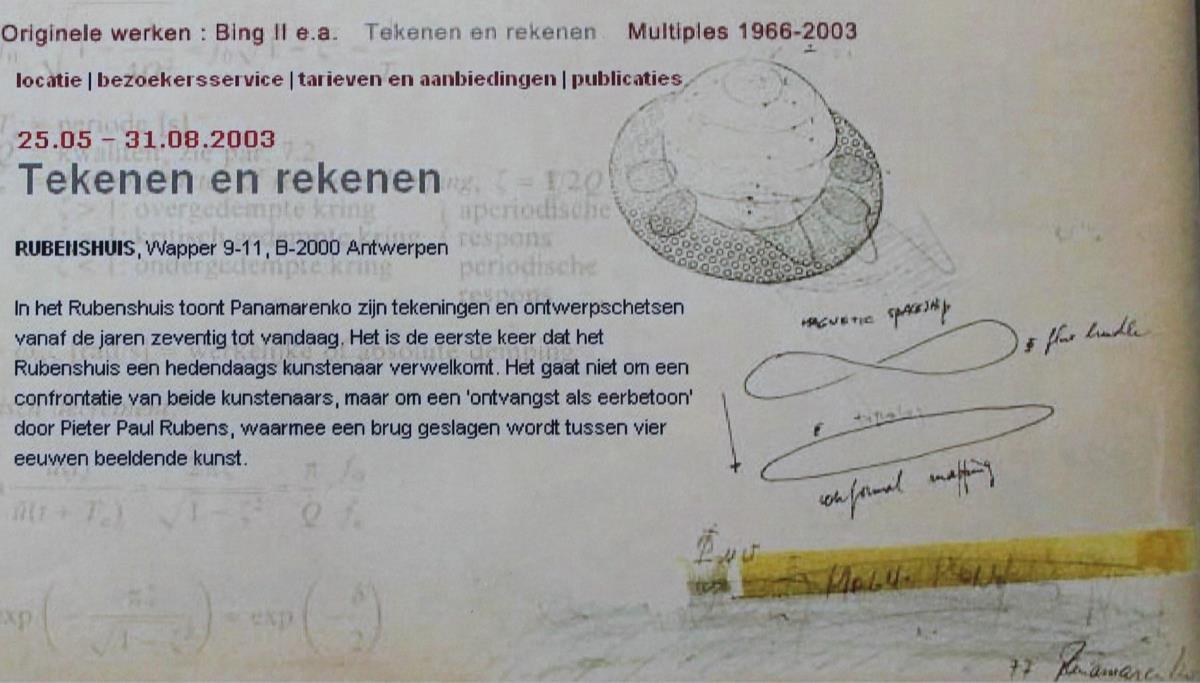 Originele werken : Bing II e.a. Tekenen en rekenen Multiples 1966-2003
locatie | bezoekersservice | tarieven en aanbiedingen | publicaties
25.05 – 31.08.2003
Tekenen en rekenen
RUBENSHUIS, Wapper 9-11, B-2000 Antwerpen
In het Rubenshuis toont Panamarenko zijn tekeningen en ontwerpschetsen
vanaf de jaren zeventig tot vandaag. Het is de eerste keer dat het
Rubenshuis een hedendaags kunstenaar verwelkomt. Het gaat niet om een
confrontatie van beide kunstenaars, maar om een 'ontvangst als eerbetoon'
door Pieter Paul Rubens, waarmee een brug geslagen wordt tussen vier
eeuwen beeldende kunst.
periode [s]
ζ = 1/2Q
overgedempte kring aperiodische
respons
ondergedempte kring periodische
respons
MAGNETIC SPACESHIP
flux bundle
conformal mapping
77 Panamarenko